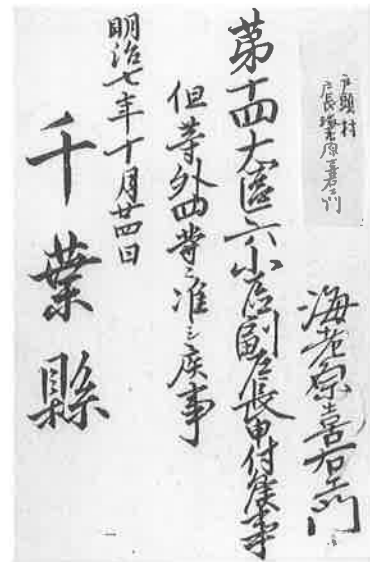 戸頭村
戸長海老原喜右衛門
海老原喜右衛門
第十四大区六小区副戸長申付候事
但等外四等ニ准シ候事
明治七年十月廿四日
千葉縣